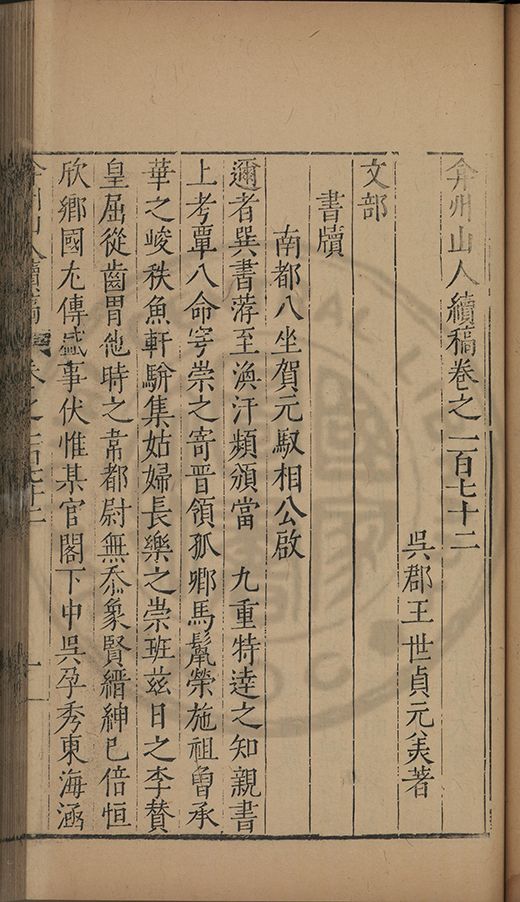 弇州山人續稿卷之一百七十二
吳郡王世貞元美著
文部
書牘
南都八坐賀元馭相公啟
邇者巽書荐至渙汗頻頒當 九重特達之知親書
上考覃八命穹崇之寄晉領孤卿馬鬣榮施祖曾承
華之峻秩魚軒駢集姑婦長樂之崇班茲日之李贊
皇屈從齒胃他時之韋都尉無忝象賢縉紳已倍恒
欣鄉國尤傳盛事伏惟某官閣下中吳孕秀東海涵
弇州山人續稿 卷之一百七十二 一